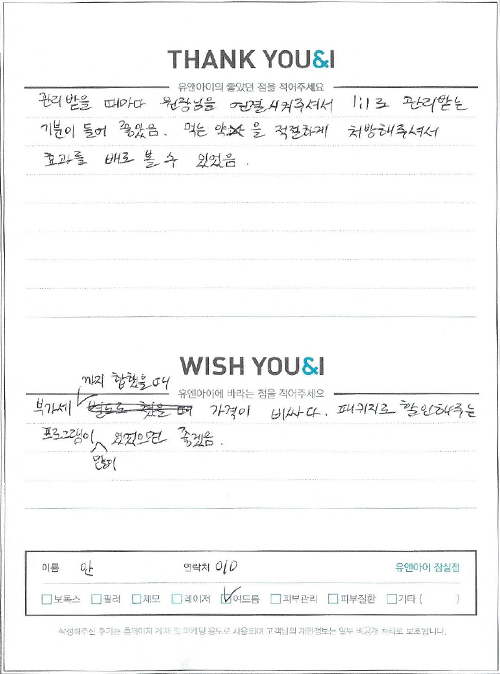 THANK YOU&I
유앤아이의 좋았던 점을 적어주세요
관리받을 때마다 원장님을 연결시켜주셔서 1:1로 관리받는
기분이 들어 좋았음. 먹는 약을 적절하게 처방해주셔서
효과를 배로 볼 수 있었음.
WISH YOU&I
까지 합했을 때
유앤아이에 바라는 점을 적어주세요
부가세 별도로 했을 때 가격이 비싸다. 패키지로 할인해주는
프로그램이 있었으면 좋겠음.
많이
이름 안 연락처 010 유앤아이 잠실점
보톡스 필러 제모 레이저 여드름 피부관리 피부질환 기타 ( )
작성해주신 후기는 홈페이지 게재 및 마케팅 용도로 사용되며 고객님의 개인정보는 일부 비공개 처리로 보호됩니다.